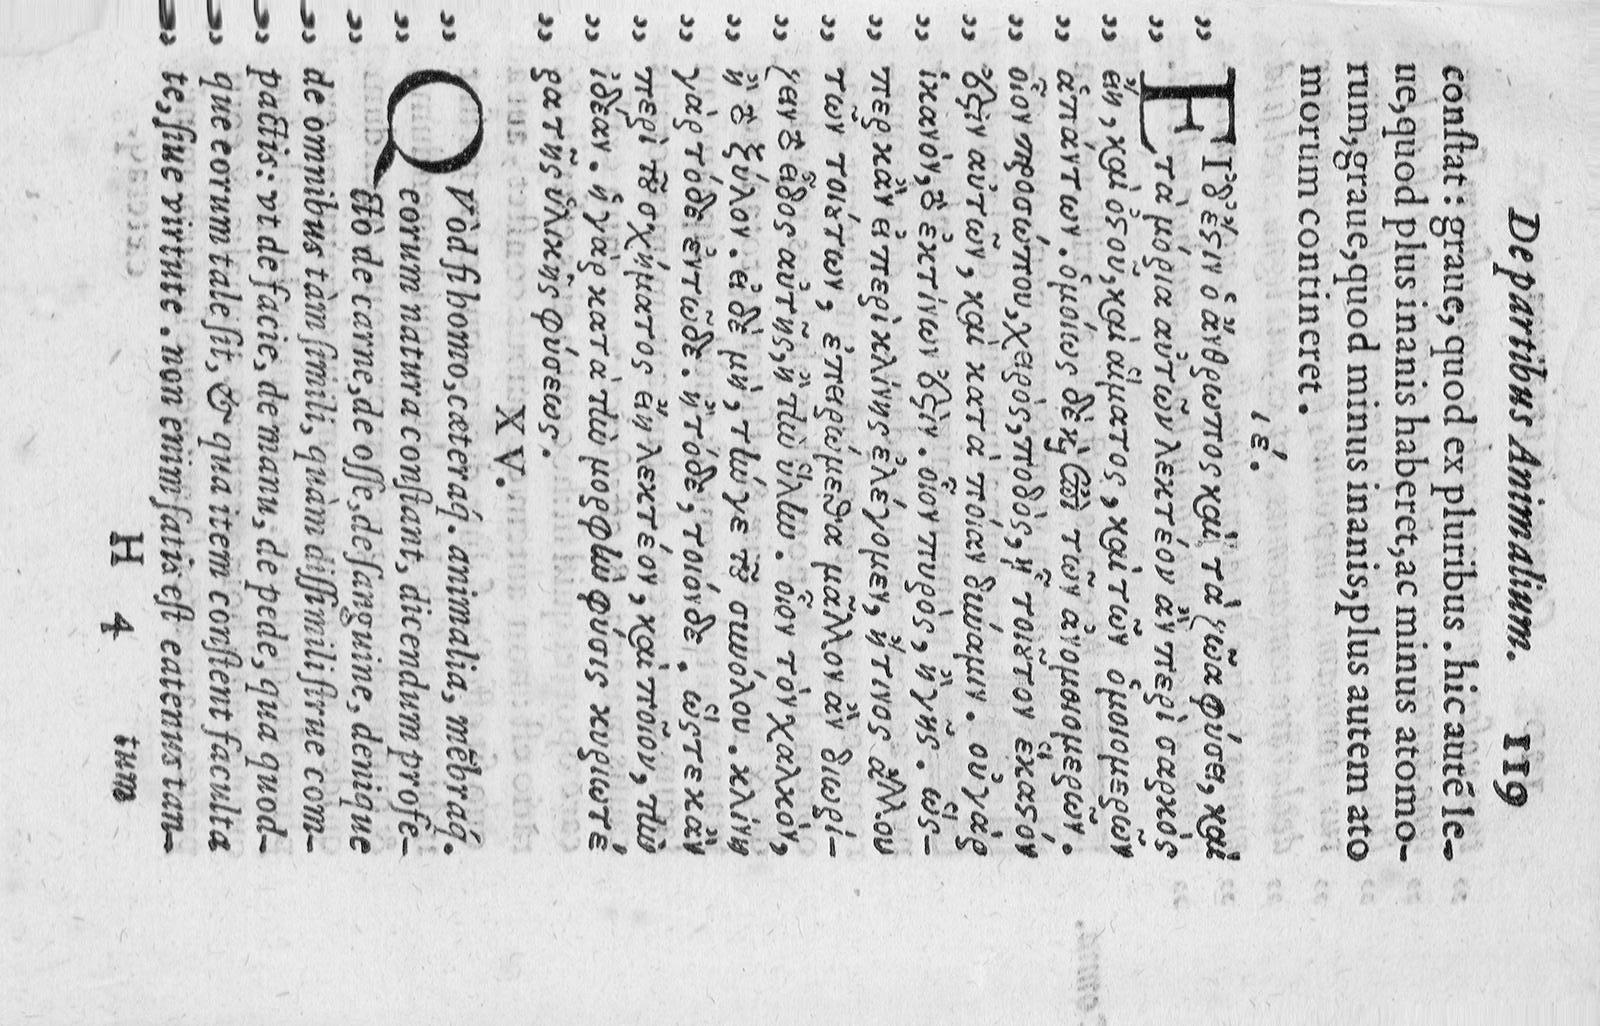 De partibus Animalium. 119
conſtat: graue, quod ex pluribus. hic autē le-
ue, quod plus inanis haberet, ac minus atomo-
rum, graue, quod minus inanis, plus autem ato
morum contineret.
ιέ.
ΕΙ δ' ἔστιν ὁ ἄνθρωπος καὶ τὰ ζῶα φύσει, καὶ
τὰ μόρια αὐτῶν λεκτέον ἂν περὶ σαρκὸς
εἴη, καὶ ὀστοῦ, καὶ αἵματος, καὶ τῶν ὁμοιομερῶν
ἁπάντων. ὁμοίως δὲ καὶ τῶν ἀνομοιομερῶν.
οἷον προσώπου, χειρὸς, ποδὸς, ᾗ τοιοῦτον ἕκαστόν
ἐστιν αὐτῶν, καὶ κατὰ ποίαν δύναμιν. οὐ γὰρ
ἱκανὸν, οὐ ἐκ τίνων ἐστίν. οἷον πυρὸς, ἢ γῆς. ὥσ-
περ κἂν εἰ περὶ κλίνης ἐλέγομεν, ἤ τινος ἄλλου
τῶν τοιούτων, ἐπειρώμεθα μᾶλλον ἂν διωρί-
ζειν τὸ εἶδος αὐτῆς, ἢ τὴν ὕλην. οἷον τὸν χαλκὸν,
ἢ τὸ ξύλον. εἰ δὲ μὴ, τήν γε τοῦ συνόλου. κλίνη
γὰρ τόδε ἐν τῷδε. ἢ τόδε, τοιόνδε. ὥστε κἂν
περὶ τοῦ σχήματος εἴη λεκτέον, καὶ ποῖον, τὴν
ἰδέαν. ἡ γὰρ κατὰ τὴν μορφὴν φύσις κυριωτέ
ρα τῆς ὑλικῆς φύσεως.
XV.
QVòd ſi homo, cæteraq́. animalia, mēbraq́.
eorum natura conſtant, dicendum profe-
ctò de carne, de oſſe, de ſanguine, denique
de omnibus tàm ſimili, quàm diſſimili ſitrue com-
pactis: vt de facie, de manu, de pede, qua quod-
que eorum tale ſit, & qua item conſtent faculta
te, ſiue virtute. non enim ſatis eſt eatenus tan-
H 4 tum